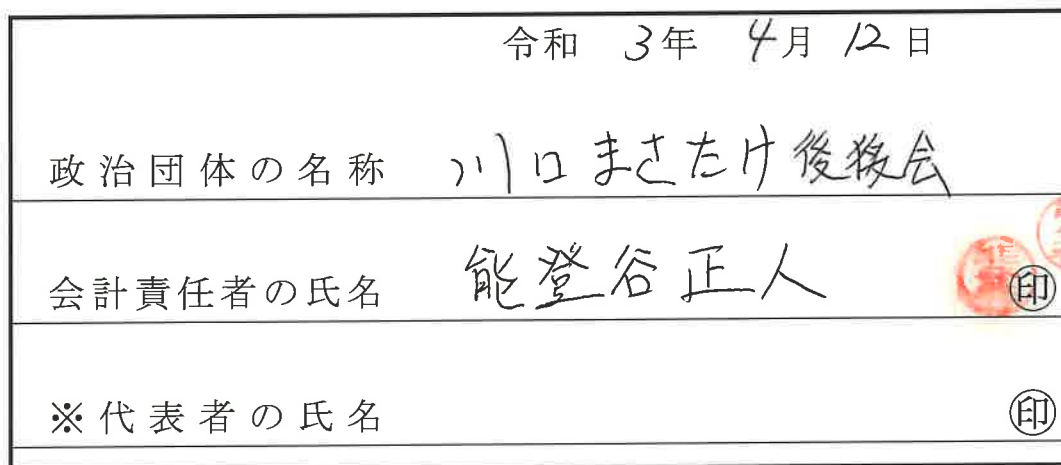 令和 3年 4月 12日
政治団体の名称 川口まさたけ後援会
会計責任者の氏名 能登谷正人 印
※代表者の氏名 印